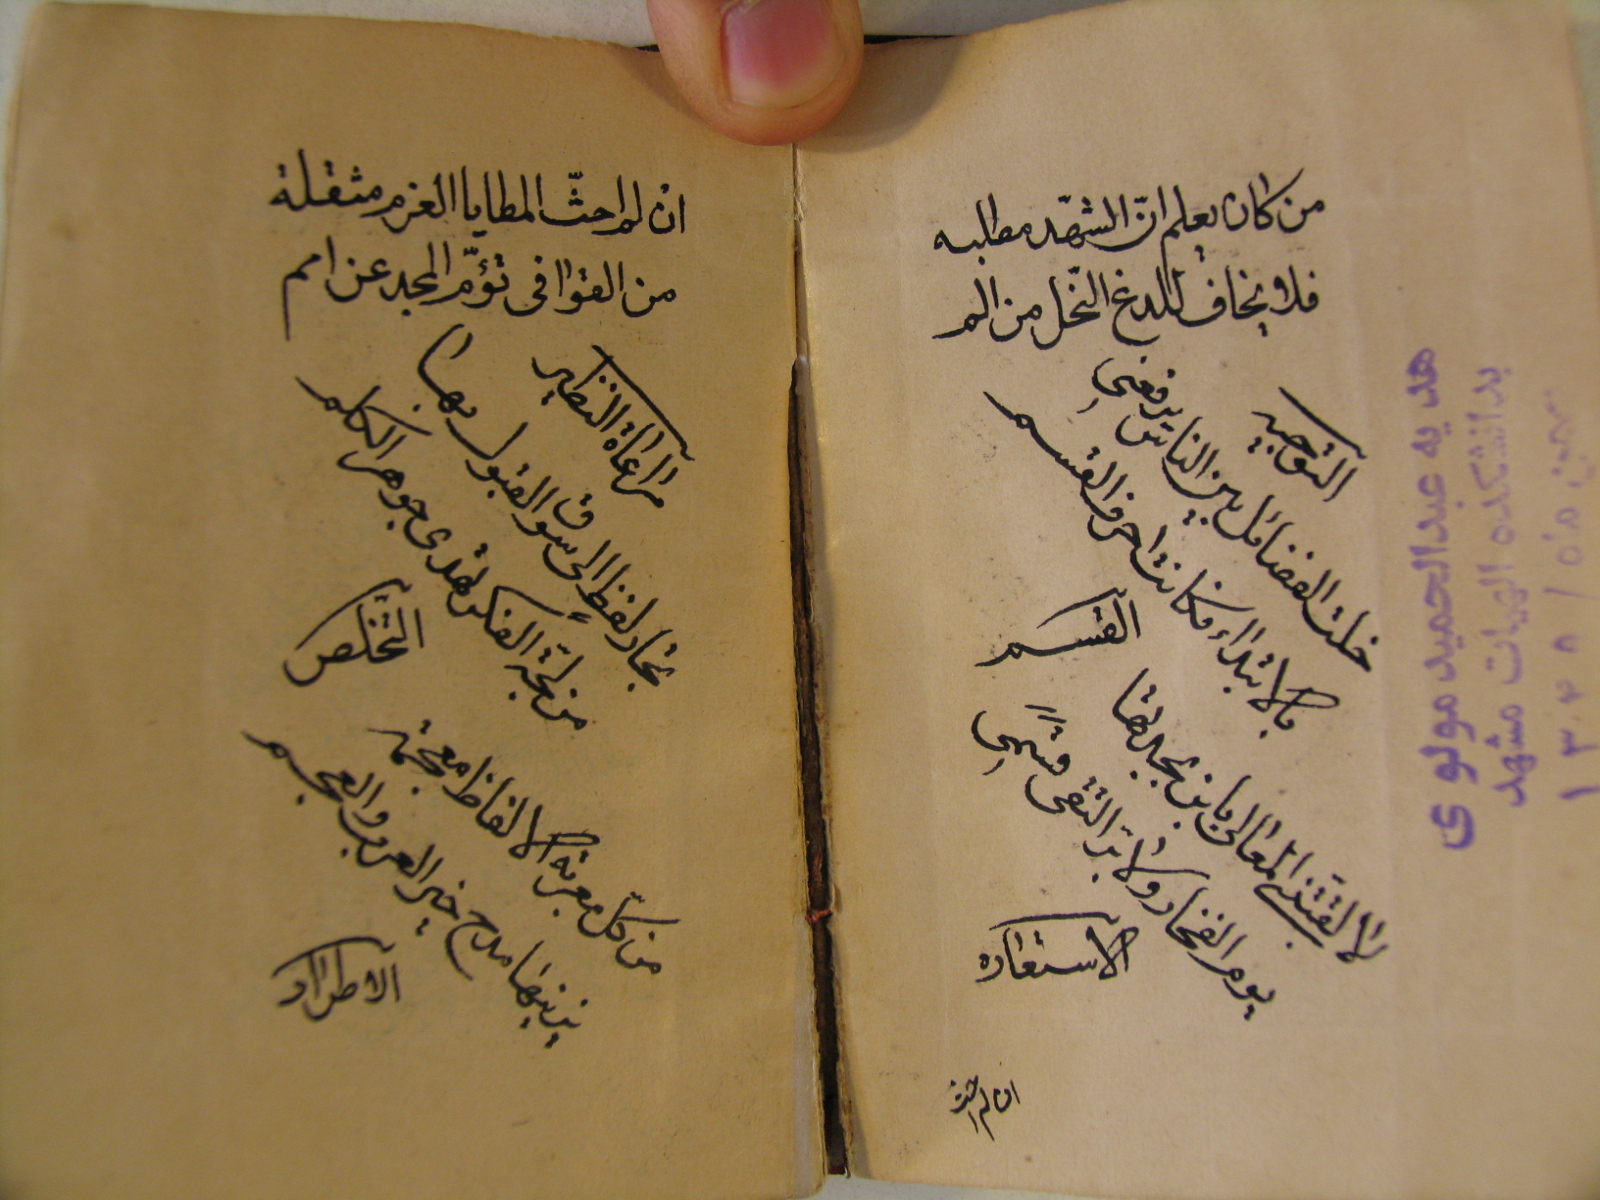 من كان يعلم انّ الشهد مطلبه
فلا يخاف للدغ النّحل من الم
التوجيه
خلت الفضائل بين الناس ترفعني
بالابتداء فكانت احرف القسم
القسم
لا لقّبتني المعالي بابن بجدتها
يوم الفخار ولا برّ التقى قسمي
الاستعاره
ان لم احث
هديه عبدالحميد مولوی
بدانشكده الهيات مشهد
بهمن ماه / ١٣٤٨
ان لم احثّ المطايا العزم مثقلة
من القوافى تؤمّ المجد عن امم
مراعاة النظير
تجار لفظ إلى سوق القبول بها
من لجّة الفكر تهدى جوهر الكلم
التخلّص
من كلّ معربة الالفاظ معجمة
يزينها مدح خير العرب والعجم
الاطراد